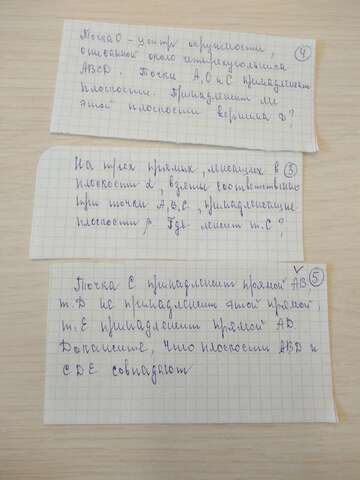 Точка О - центр окружности,
④
описанной около четырехугольника
ABCD. Точки А, О и С принадлежат
плоскости. Принадлежит ли
этой плоскости вершина D?
На трех прямых, лежащих в
③
плоскости α, взяты соответственно
три точки А, В, С, принадлежащие
плоскости β. Где лежит т. С?
Точка С принадлежит прямой АВ
⑤
т. D не принадлежит этой прямой,
т. Е принадлежит прямой AD.
Докажите, что плоскости ABD и
CDE совпадают